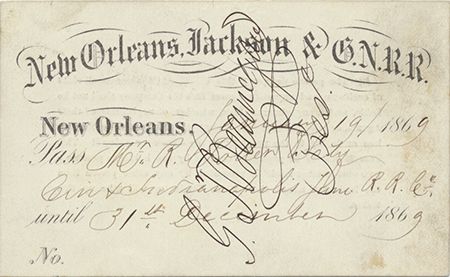 New Orleans, Jackson & G.N.R.R.
New Orleans. 19 / 1869
Pass Mr. R.
Cin & Indianapolis Junc R. R. Co.
until 31st December 1869
No.